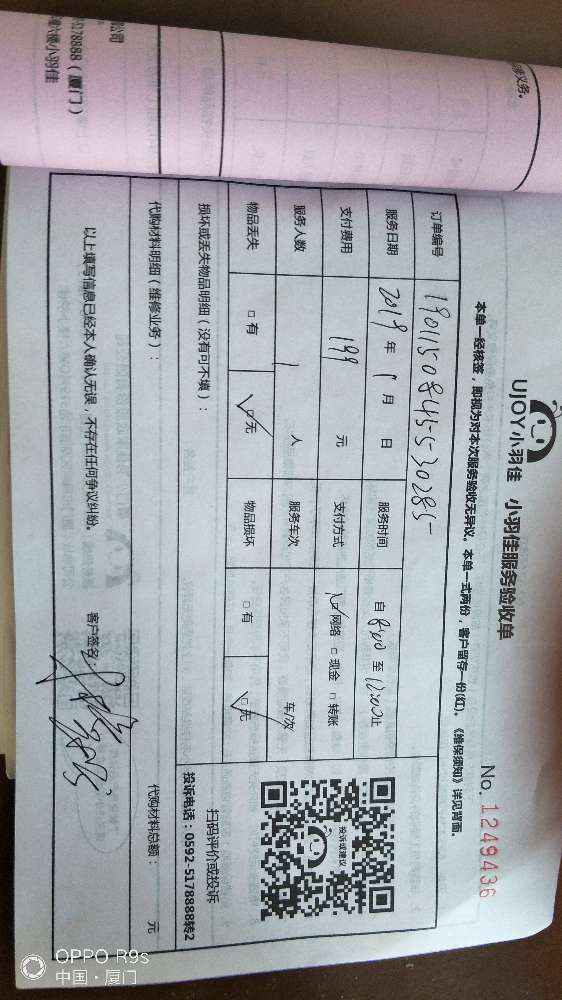 公司
5178888（厦门）
楼六楼小羽佳
修义务。
UJOY小羽佳 小羽佳服务验收单
No. 1249436
本单一经核签，即视为对本次服务验收无异议。本单一式两份，客户留存一份(红)。《维保须知》详见背面。
订单编号 1901150845530285
服务日期 2019 年 1 月 日 服务时间 自 8:00 至 12:00 止
支付费用 199 元 支付方式 □网络 □现金 □转账
服务人数 1 人 服务车次 车/次
物品丢失 □有 □无 物品损坏 □有 □无
投诉或建议
扫码评价或投诉
投诉电话：0592-5178888转2
损坏或丢失物品明细（没有可不填）：
代购材料明细（维修业务）： 代购材料总额： 元
以上填写信息已经本人确认无误，不存在任何争议纠纷。 客户签名：
OPPO R9s
中国·厦门